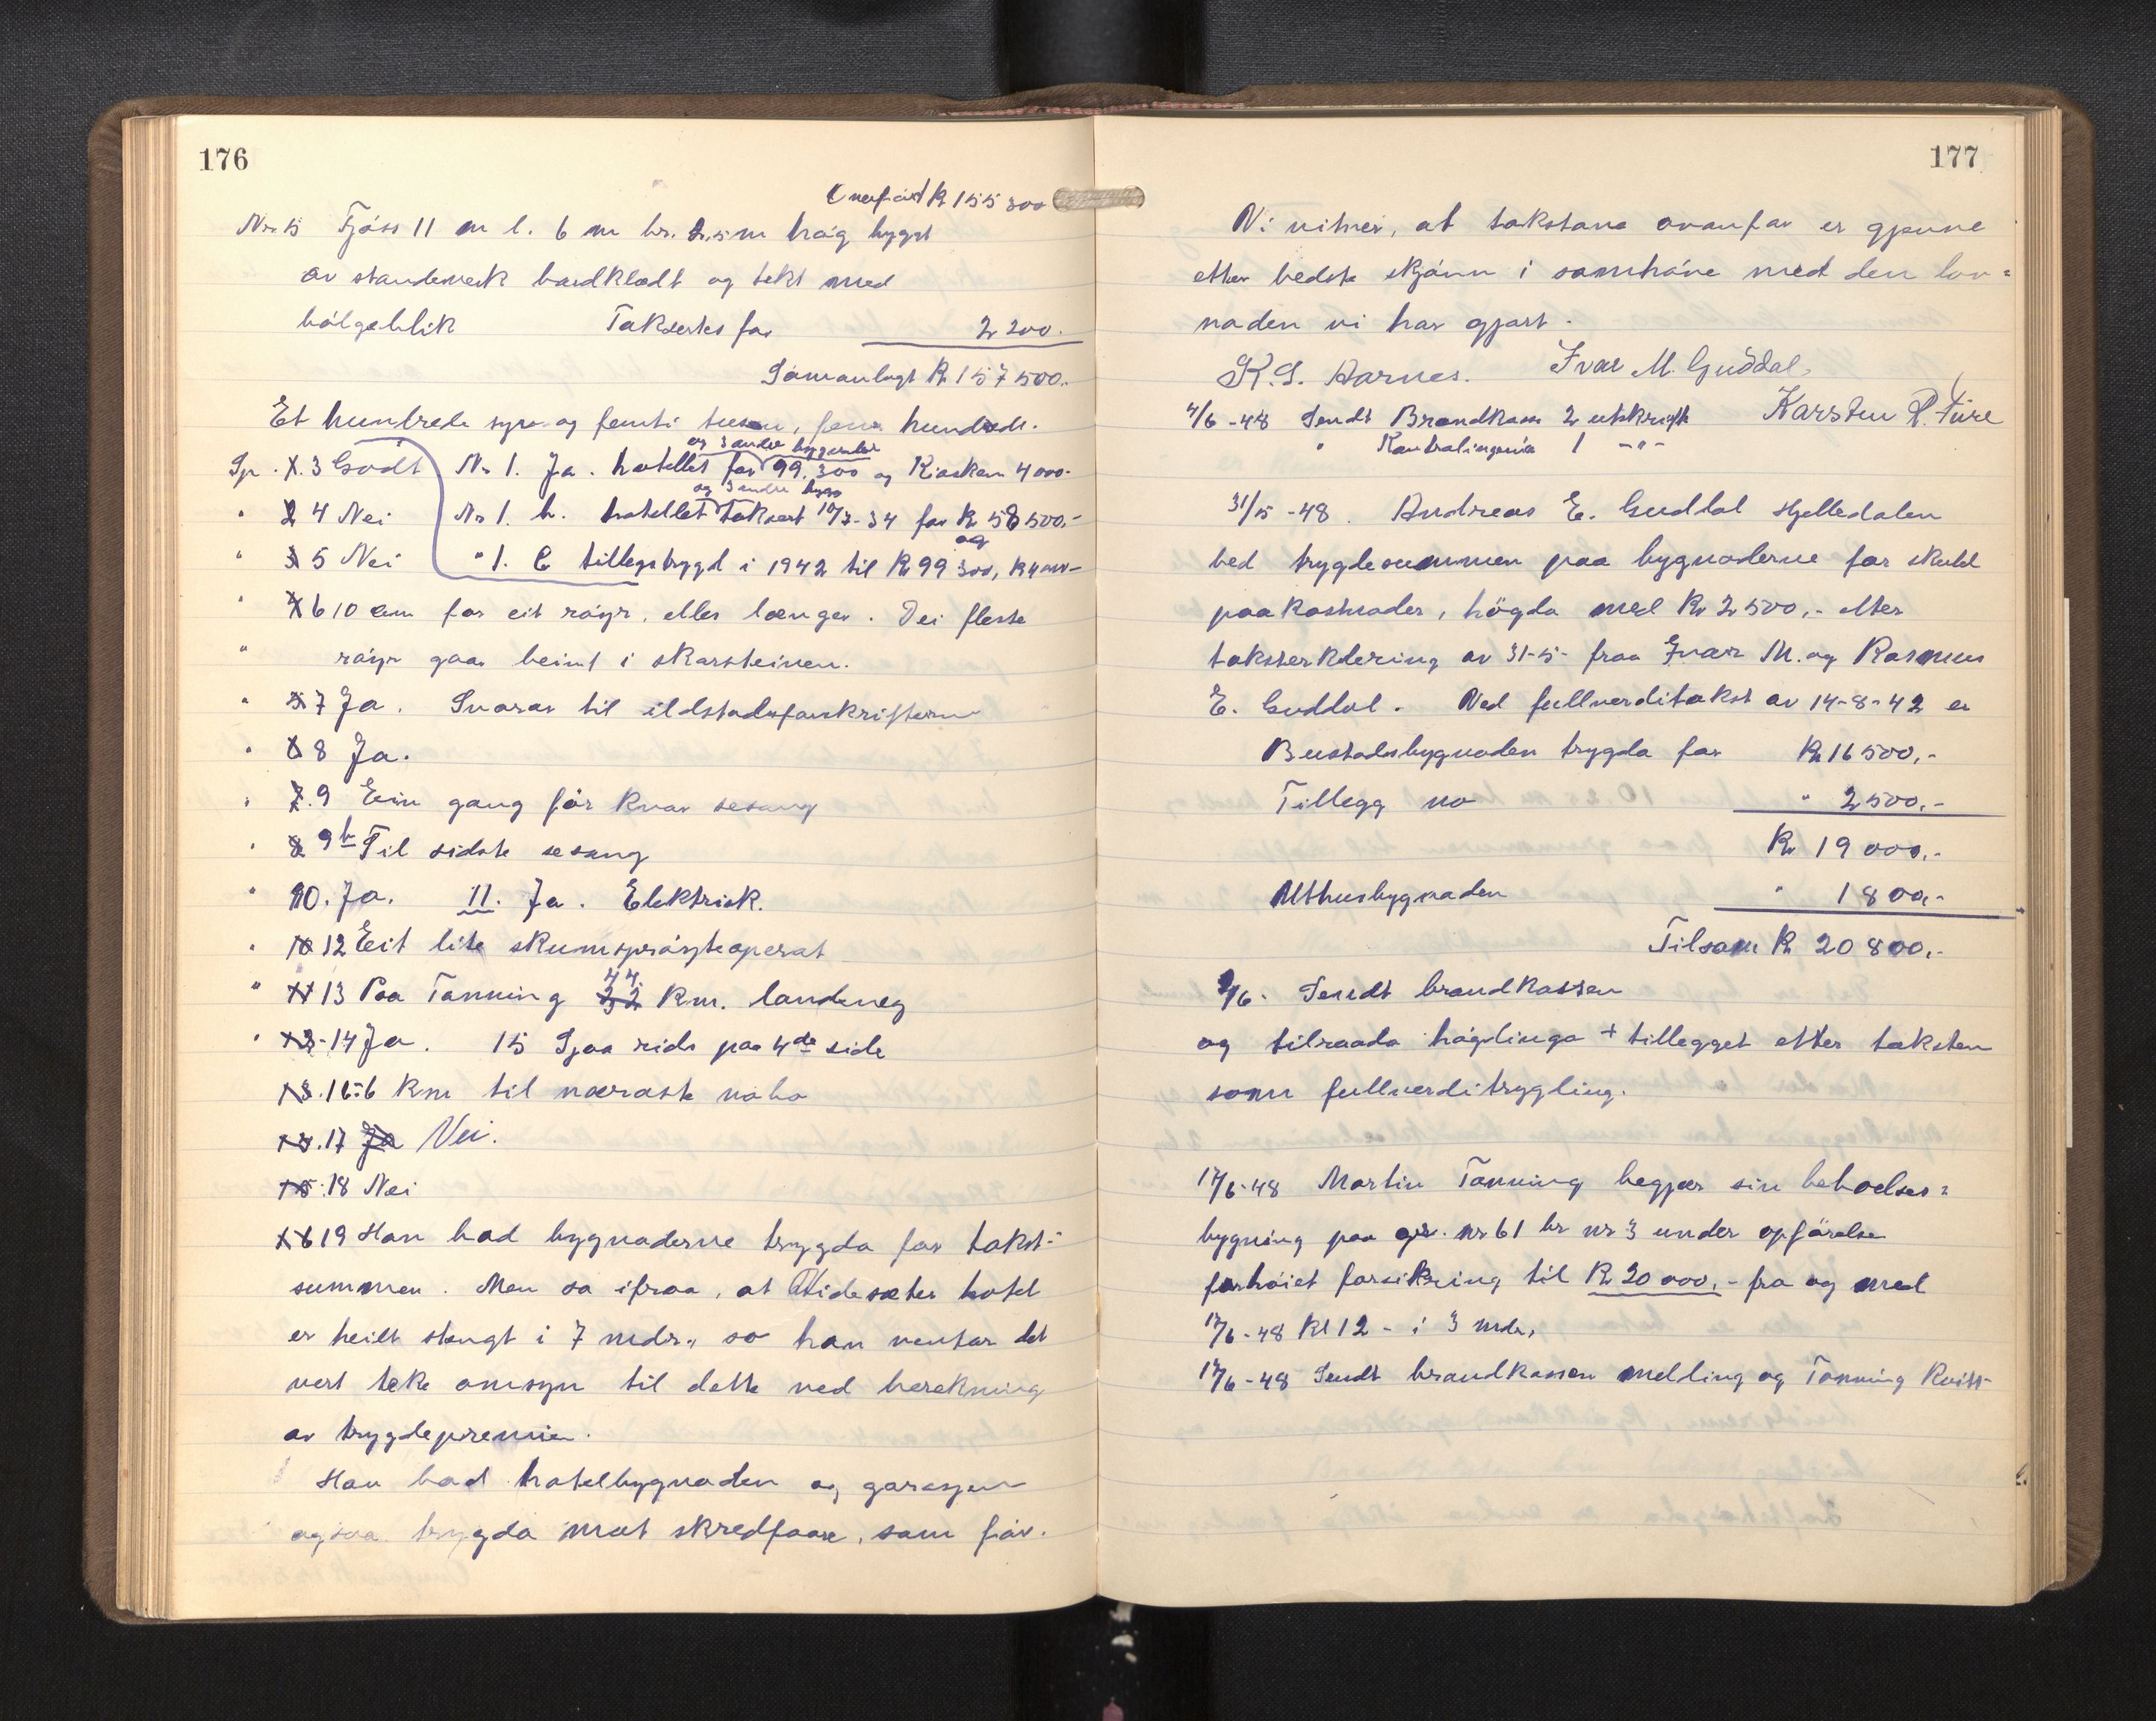 176
Overført Kr 155 300
Nr. 5 Fjøs 11 m l. 6 m br. 2,5 m høg bygt
av standeverk bordklædt og tekt med
bølgeblik Taksertes for 2 200.
Samanlagt Kr 157 500.
Et hundrede syv og femti tusen, fem hundrede.
og 3 andre bygninler
Sp. 3 Godt Nr 1. Ja. hotellet for 99.300 og Kiosken 4000.
og 3 andre bygn
" 4 Nei Nr 1. b. hotellet Taksert 10/7-34 for Kr 58 500,-
og
" 5 Nei " 1. C tillegstrygd i 1942 til Kr 99 300, Kr 4000-
" 6 10 cm for eit røyr, eller længer. Dei fleste
" røyr gaar beint i skorsteinen.
" 7 Ja. Svarar til ildstadsforskriftern
" 8 Ja.
" 9 Ein gang før kvar sesang
" 9 b Til sidste sesang
" 10. Ja. 11. Ja. Elektrisk.
" 12 Eit lite skumsprøyteaperat
44
" 13 Paa Tonning 32 Km. landeveg
" 14 Ja. 15 Sjaa rids paa 4de side
16: 6 Km til næraste nabo
17 Ja Nei.
18 Nei
19 Han bad bygnaderne trygda for takst-
summen. Men sa ifraa, at Videsæter hotel
er heilt stengt i 7 mdr., so han ventar det
vert teke omsyn til dette ved berekning
av trygdepremien.
Han bad hotelbygnaden og garasjen
ogsaa trygda mot skredfaare, som før.
177
Vi vitner, at takstane ovanfor er gjevne
etter bedste skjønn i samhøve med den lov=
naden vi har gjort.
K. S. Aarnes. Ivar M. Guddal.
4/6-48 Sendt Brandkassa 2 utskrift Karsten R. Fure
" Kontrolingeniør 1 -"-
31/5-48. Andreas E. Guddal Hjelledalen
bed trygdesummen paa bygnaderne for skuld
paakostnader, högda med Kr 2500,- etter
taksterkdering av 31-5- fraa Ivar M. og Rasmus
E. Guddal. Ved fullverditakst av 14-8-42 er
Bustadsbygnaden trygda for Kr 16 500,-
Tillegg no " 2500,-
Kr 19 000,-
Uthusbygnaden " 1800,-
Tilsam Kr 20 800,-
2/6. Sendt brandkassen
og tilraada høgdinga + tillegget etter taksten
som fullverditrygding.
17/6-48 Martin Tonning begjær sin beboelses=
bygning paa gr. nr 61 br nr 3 under opförelse
forhöiet forsikring til Kr 20 000,- fra og med
17/6-48 Kl 12 - i 3 mdr,
17/6-48 Sendt brandkassen melding og Tonning Kvitt-